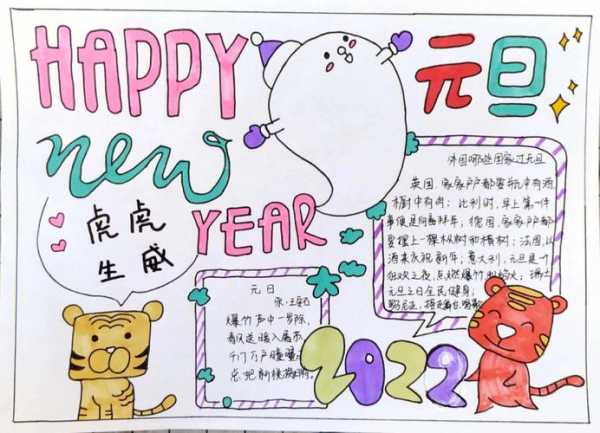 HAPPY
元旦
new
YEAR
虎虎
生威
外国哪些国家过元旦
英国,家家户户都要瓶中有酒,
橱中有肉;比利时,早上第一件
事便是向畜拜年;德国,家家户户都
要摆上一棵枞树和横树;法国,以
酒来庆祝新年;意大利,元旦是一
狂欢之夜,点燃爆竹和焰火;瑞士
元旦之日全民健身;
元日
宋·王安石
爆竹声中一岁除,
春风送暖入屠苏,
千门万户曈曈
总把新桃换旧符。
2022